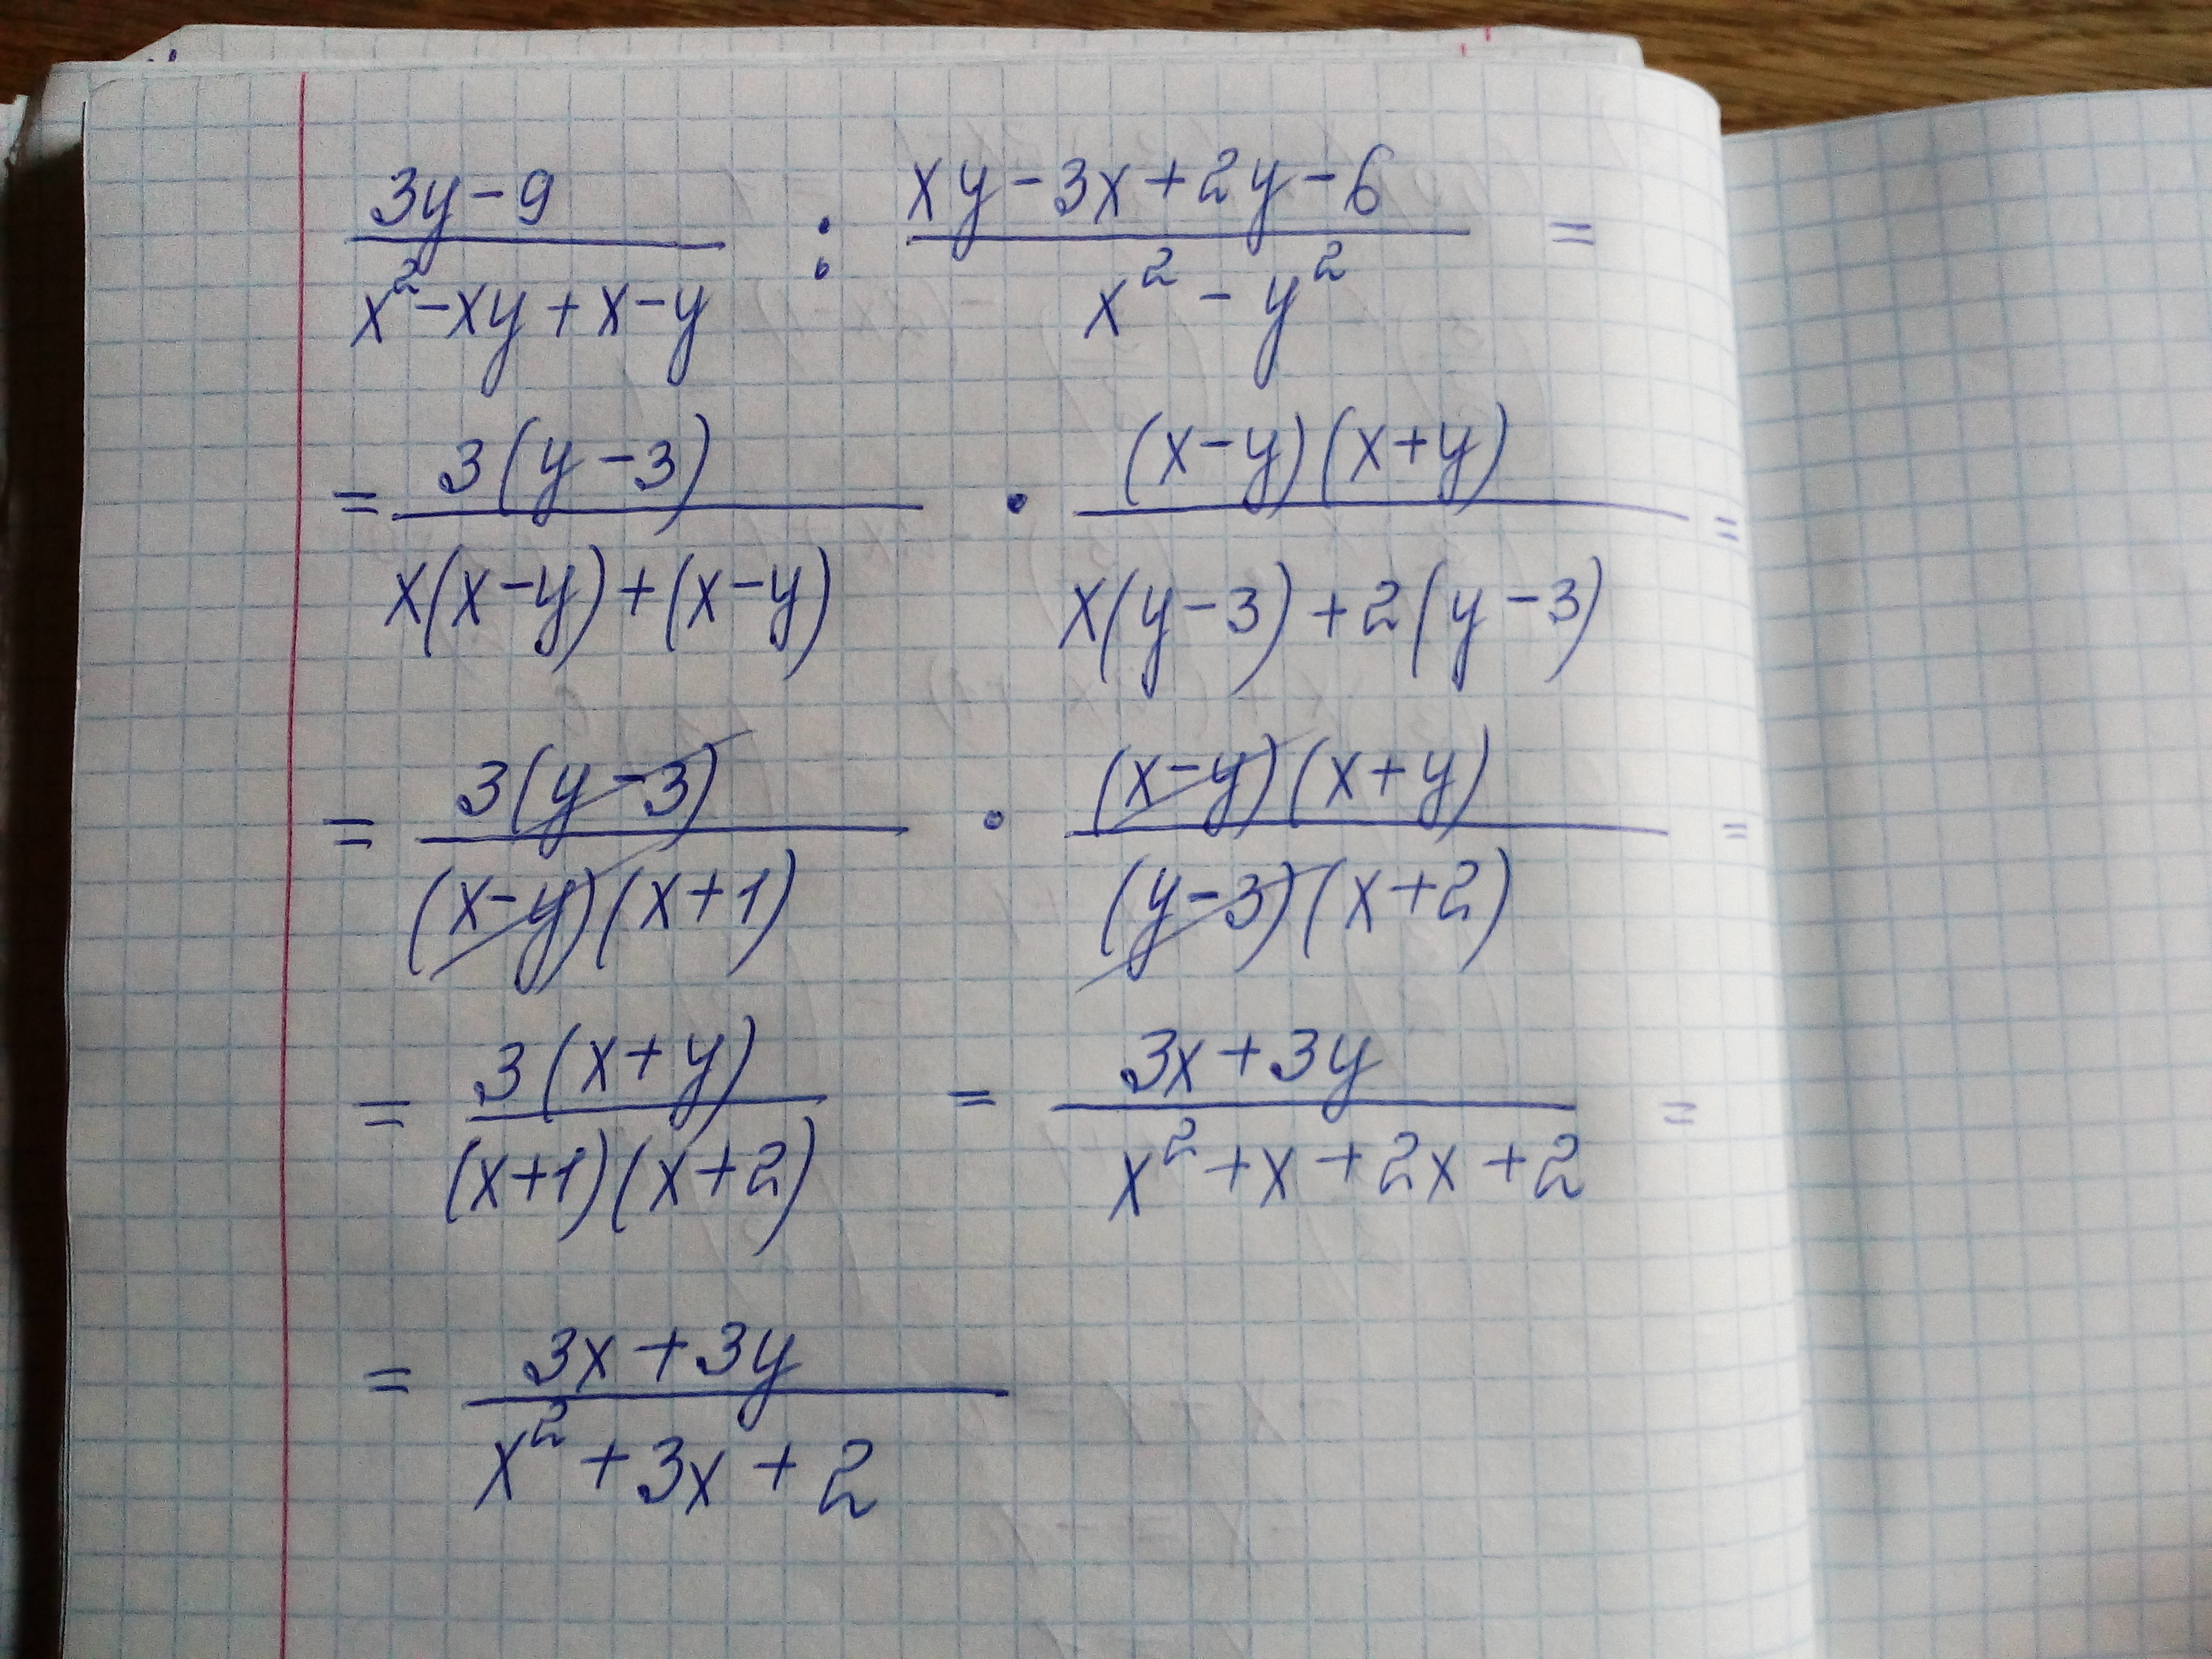 3y-9 / x²-xy+x-y : xy-3x+2y-6 / x²-y² =
= 3(y-3) / x(x-y)+(x-y) · (x-y)(x+y) / x(y-3)+2(y-3) =
= 3(y-3) / (x-y)(x+1) · (x-y)(x+y) / (y-3)(x+2) =
= 3(x+y) / (x+1)(x+2) = 3x+3y / x²+x+2x+2 =
= 3x+3y / x²+3x+2